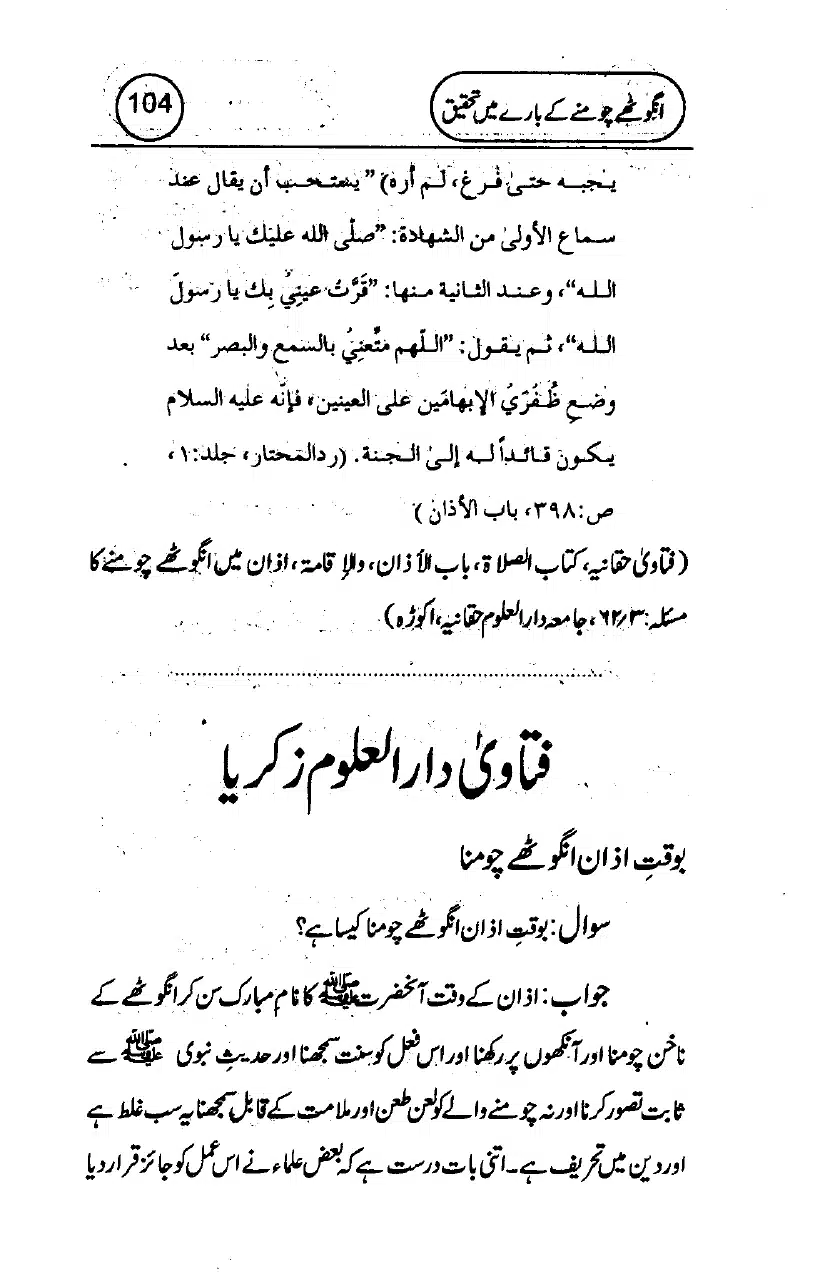 انگوٹھے چومنے کے بارے میں تحقیق
104
يجبه حتىٰ فرغ، لم أره) ”يستحب أن يقال عند
سماع الأولىٰ من الشهادة: ”صلّى الله عليك يا رسول
الله“، وعند الثانية منها: ”قَرَّتْ عينِيْ بِك يا رسولَ
الله“، ثم يقول: ”اللّهم مَتِّعنِيْ بالسمع والبصر“ بعد
وضعِ ظُفُرَيْ الإبهامَين على العينين، فإنّه عليه السلام
يكون قائداً له إلىٰ الجنة. (ردالمحتار، جلد:۱،
ص:۳۹۸، باب الأذان)
(فتاویٰ حقانیہ، کتاب الصلاۃ، باب الأذان، والإقامۃ، اذان میں انگوٹھے چومنے کا
مسئلہ:۶۲/۳، جامعہ دارالعلوم حقانیہ، اکوڑہ)
فتاویٰ دارالعلوم زکریا
بوقتِ اذان انگوٹھے چومنا
سوال: بوقتِ اذان انگوٹھے چومنا کیسا ہے؟
جواب: اذان کے وقت آنحضرت ﷺ کا نام مبارک سن کر انگوٹھے کے
ناخن چومنا اور آنکھوں پر رکھنا اور اس فعل کو سنت سمجھنا اور حدیثِ نبوی ﷺ سے
ثابت تصور کرنا اور نہ چومنے والے کو لعن طعن اور ملامت کے قابل سمجھنا یہ سب غلط ہے
اور دین میں تحریف ہے۔ اتنی بات درست ہے کہ بعض علماء نے اس عمل کو جائز قرار دیا